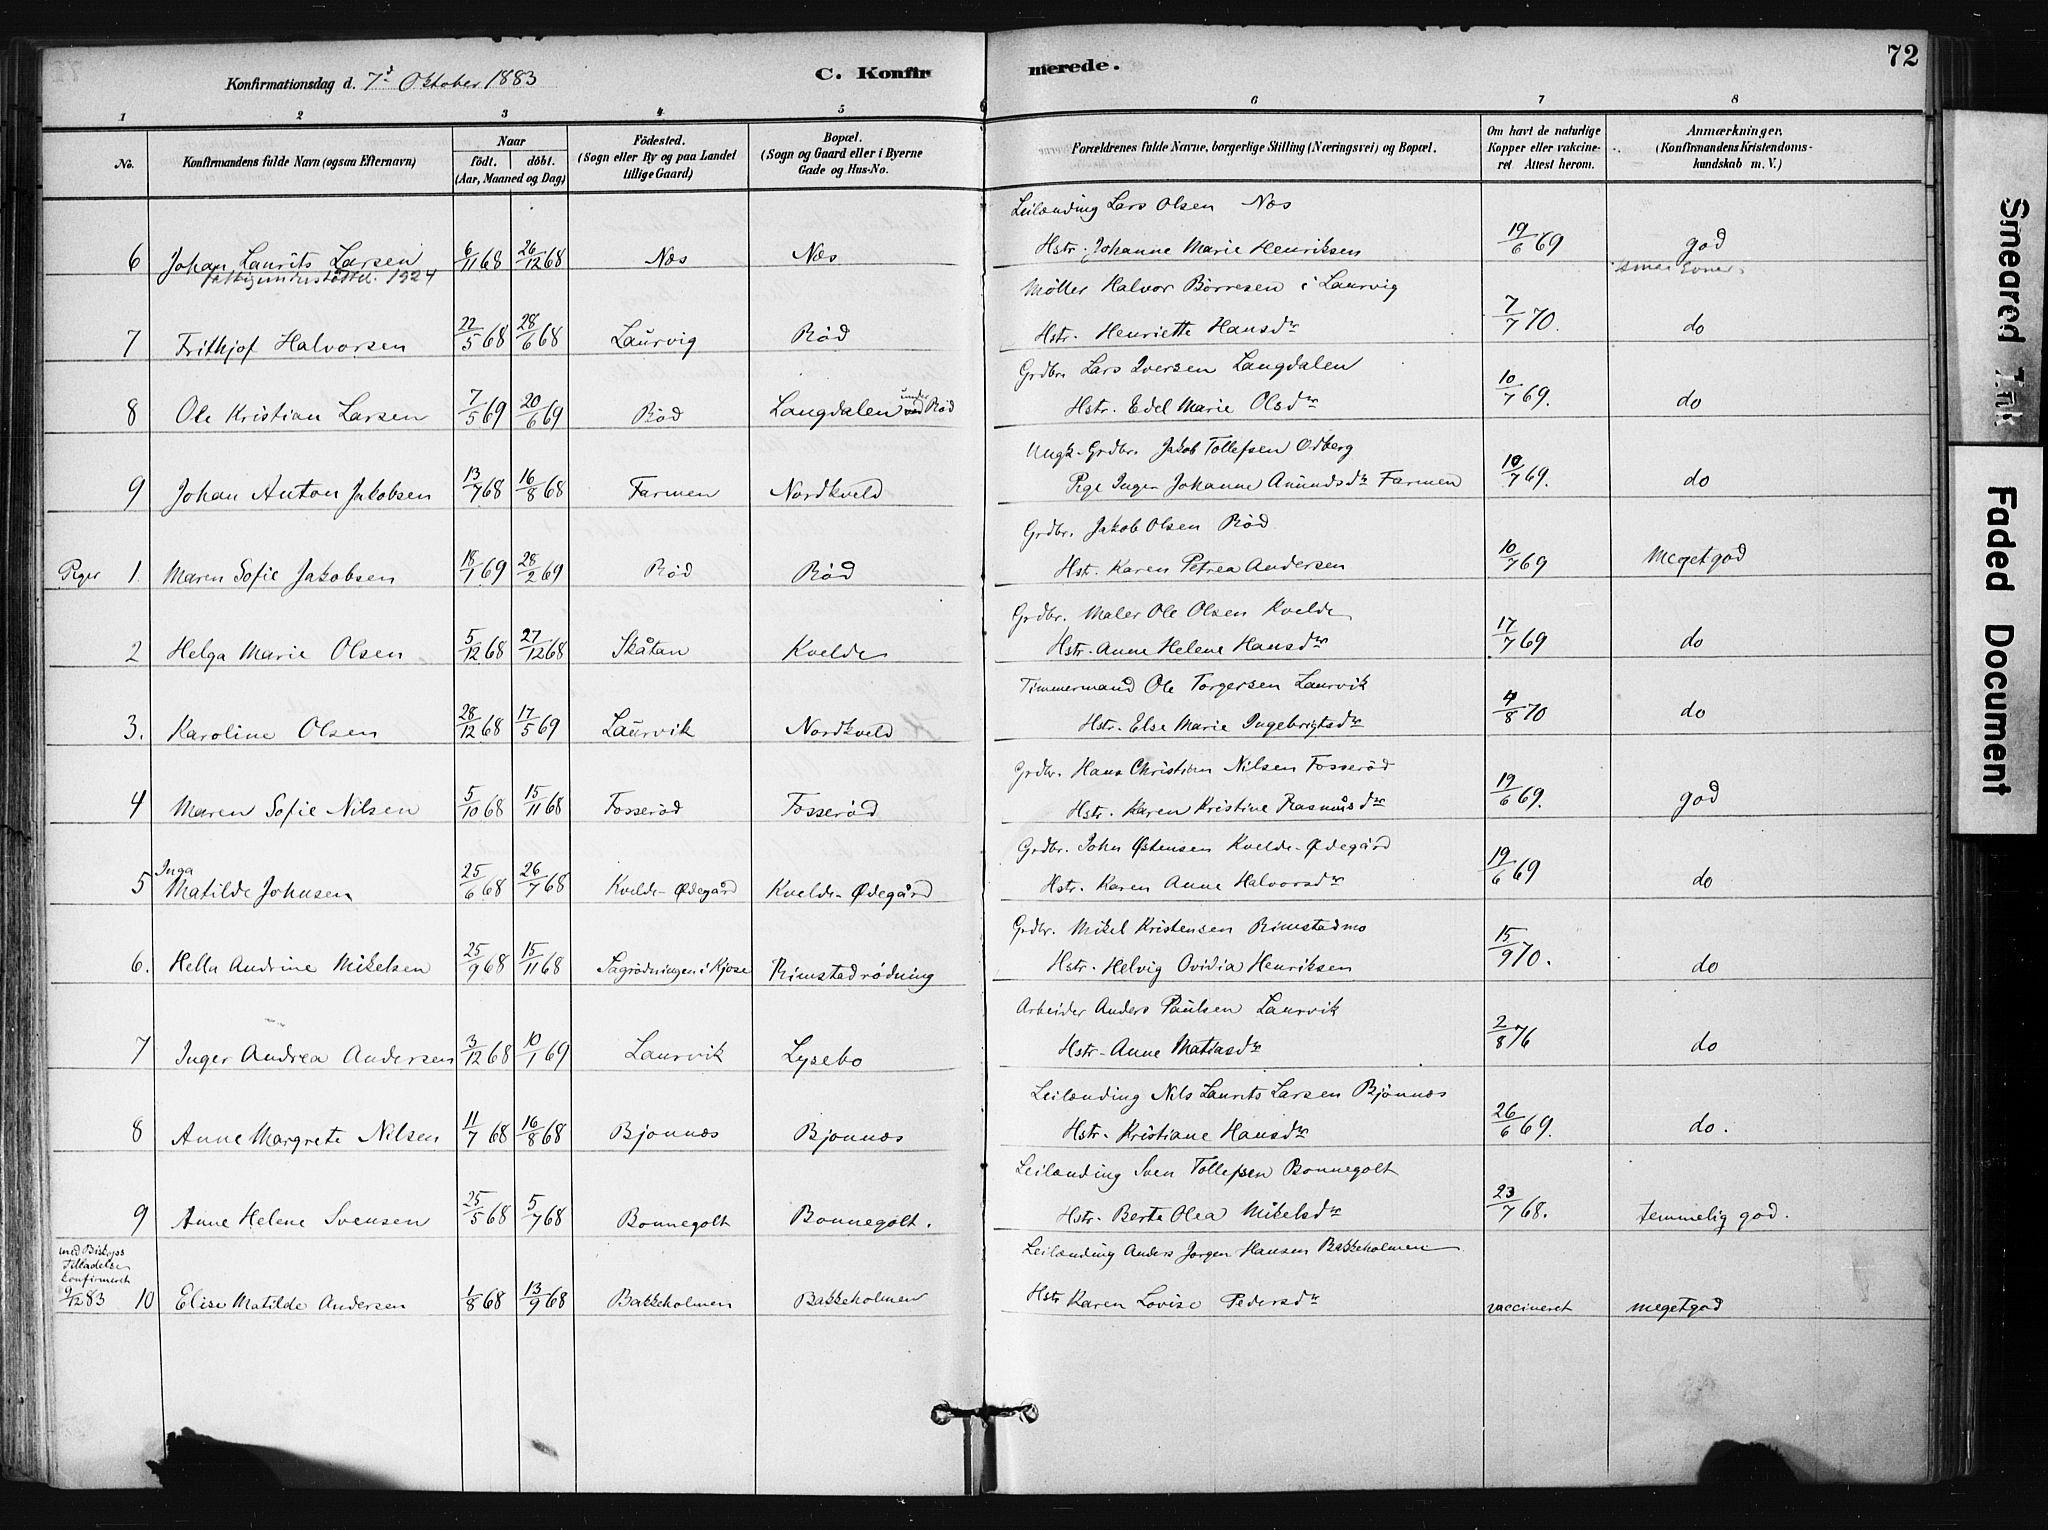 72
Konfirmationsdag d. 7d Oktober 1883
C. Konfirmerede.
1 2 3 4 5 6 7 8
No. Konfirmandens fulde Navn (ogsaa Efternavn) Naar födt. döbt. (Aar, Maaned og Dag) Födested. (Sogn eller By og paa Landet tillige Gaard) Bopæl. (Sogn og Gaard eller i Byerne Gade og Hus-No. Forældrenes fulde Navne, borgerlige Stilling (Næringsvei) og Bopæl. Om havt de naturlige Kopper eller vakcineret Attest herom. Anmærkninger. (Konfirmandens Kristendomskundskab m. V.)
Leilænding Lars Olsen Næs
6 Johan Laurits Larsen 6/11 68 26/12 68 Næs Næs Hstr. Johanne Marie Henriksen 19/6 69 god
1924 Evner
Møller Halvor Börresen i Laurvig
7 Frithjof Halvorsen 22/5 68 28/6 68 Laurvig Rød Hstr. Henriette Hansdr 7/7 70. do
Grdbr. Lars Iversen Langdalen
8 Ole Kristian Larsen 7/5 69 20/6 69 Rød Langdalen under Rød Hstr. Edel Marie Olsdr 10/7 69. do
Ungk. Grdbr. Jakob Tollefsen Odberg
9 Johan Anton Jakobsen 13/7 68 16/8 68 Farmen Nordkveld Pige Inger Johanne Amundsdr Farmen 10/7 69. do
Grdbr. Jakob Olsen Rød
Piger 1. Maren Sofie Jakobsen 18/1 69 28/2 69 Rød Rød Hstr. Karen Petrea Andersen 10/7 69 Megetgod
Grdbr. Maler Ole Olsen Kvelde
2 Helga Marie Olsen 5/12 68 27/12 68 Skåtan Kvelde Hstr. Anne Helene Hansdr 17/7 69 do
Timmermand Ole Torgersen Laurvik
3. Karoline Olsen 28/12 68 17/5 69 Laurvik Nordkveld Hstr. Else Marie Ingebrigtsdr 4/8 70 do
Grdbr. Hans Christian Nilsen Fosserød
4 Maren Sofie Nilsen 5/10 68 15/11 68 Fosserød Fosserød Hstr. Karen Kristine Rasmusdr 19/6 69. god
Grdbr. John Østensen Kvelde-Ødegård
5 Inga Matilde Johnsen 25/6 68 26/7 68 Kvelde-Ødegård Kvelde-Ødegård Hstr. Karen Anne Halvorsdr 19/6 69 do
Grdbr. Mikel Kristensen Rimstadmo
6. Hella Andrine Mikelsen 25/9 68 15/11 68 Sagrödningen i Kjose Rimstadrödning Hstr. Helvig Ovidia Henriksen 15/9 70. do
Arbeider Anders Paulsen Laurvik
7 Inger Andrea Andersen 3/12 68 10/1 69 Laurvik Lysebo Hstr. Anne Matiasdr 2/8 76 do
Leilænding Nils Laurits Larsen Bjönnæs
8 Anne Margrete Nilsen 11/7 68 16/8 68 Bjonnæs Bjonnæs Hstr. Kristiane Hansdr 26/6 69. do.
Leilænding Sven Tollefsen Bonnegolt
9 Anne Helene Svensen 25/5 68 5/7 68 Bonnegolt Bonnegolt. Hstr. Berte Olea Mikelsdr 23/7 68. temmelig god.
med Biskops Tilladelse konfirmeret 9/12 83
Leilænding Anders Jorgen Hansen Bakkeholmen
10 Elise Matilde Andersen 1/8 68 13/9 68 Bakkeholmen Bakkeholmen Hstr Karen Lovise Pedersdr vaccineret megetgod
Smeared Ink
Faded Document